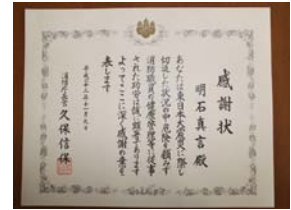 感謝状
明石真言殿
あなたは東日本大震災に際し
切迫した状況の中危険を顧みず
消防職員の健康管理等に従事
された功労は誠に顕著であります
よってここに深く感謝の意を
表します
平成二十三年十一月九日
消防庁長官 久保信保